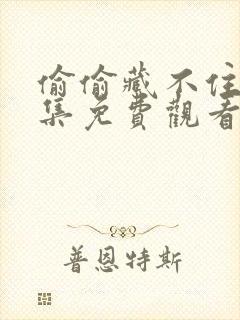 偷偷藏不住
集免費觀看
普恩特斯